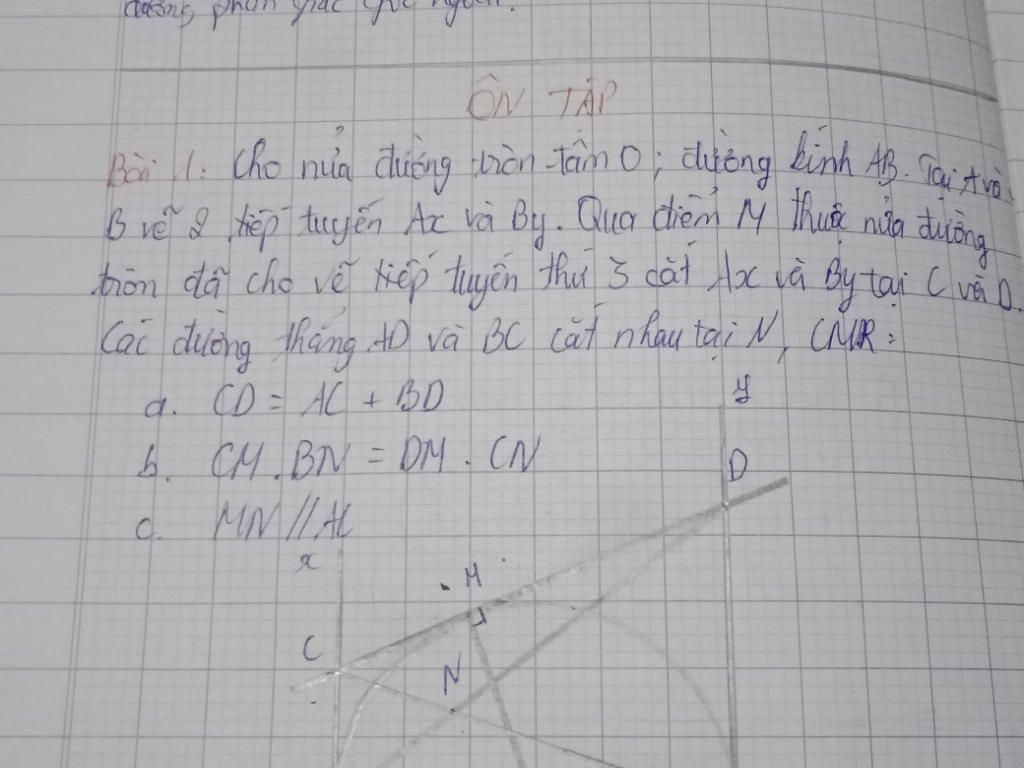 đường phân giác góc ngoài.
ÔN TẬP
Bài 1: Cho nửa đường tròn tâm O; đường kính AB. Tại A và
B vẽ 2 tiếp tuyến Ax và By. Qua điểm M thuộc nửa đường
tròn đã cho vẽ tiếp tuyến thứ 3 cắt Ax và By tại C và D.
Các đường thẳng AD và BC cắt nhau tại N, CMR:
a. CD = AC + BD
b. CM . BN = DM . CN
c. MN // AC
y
D
x
M
C
N